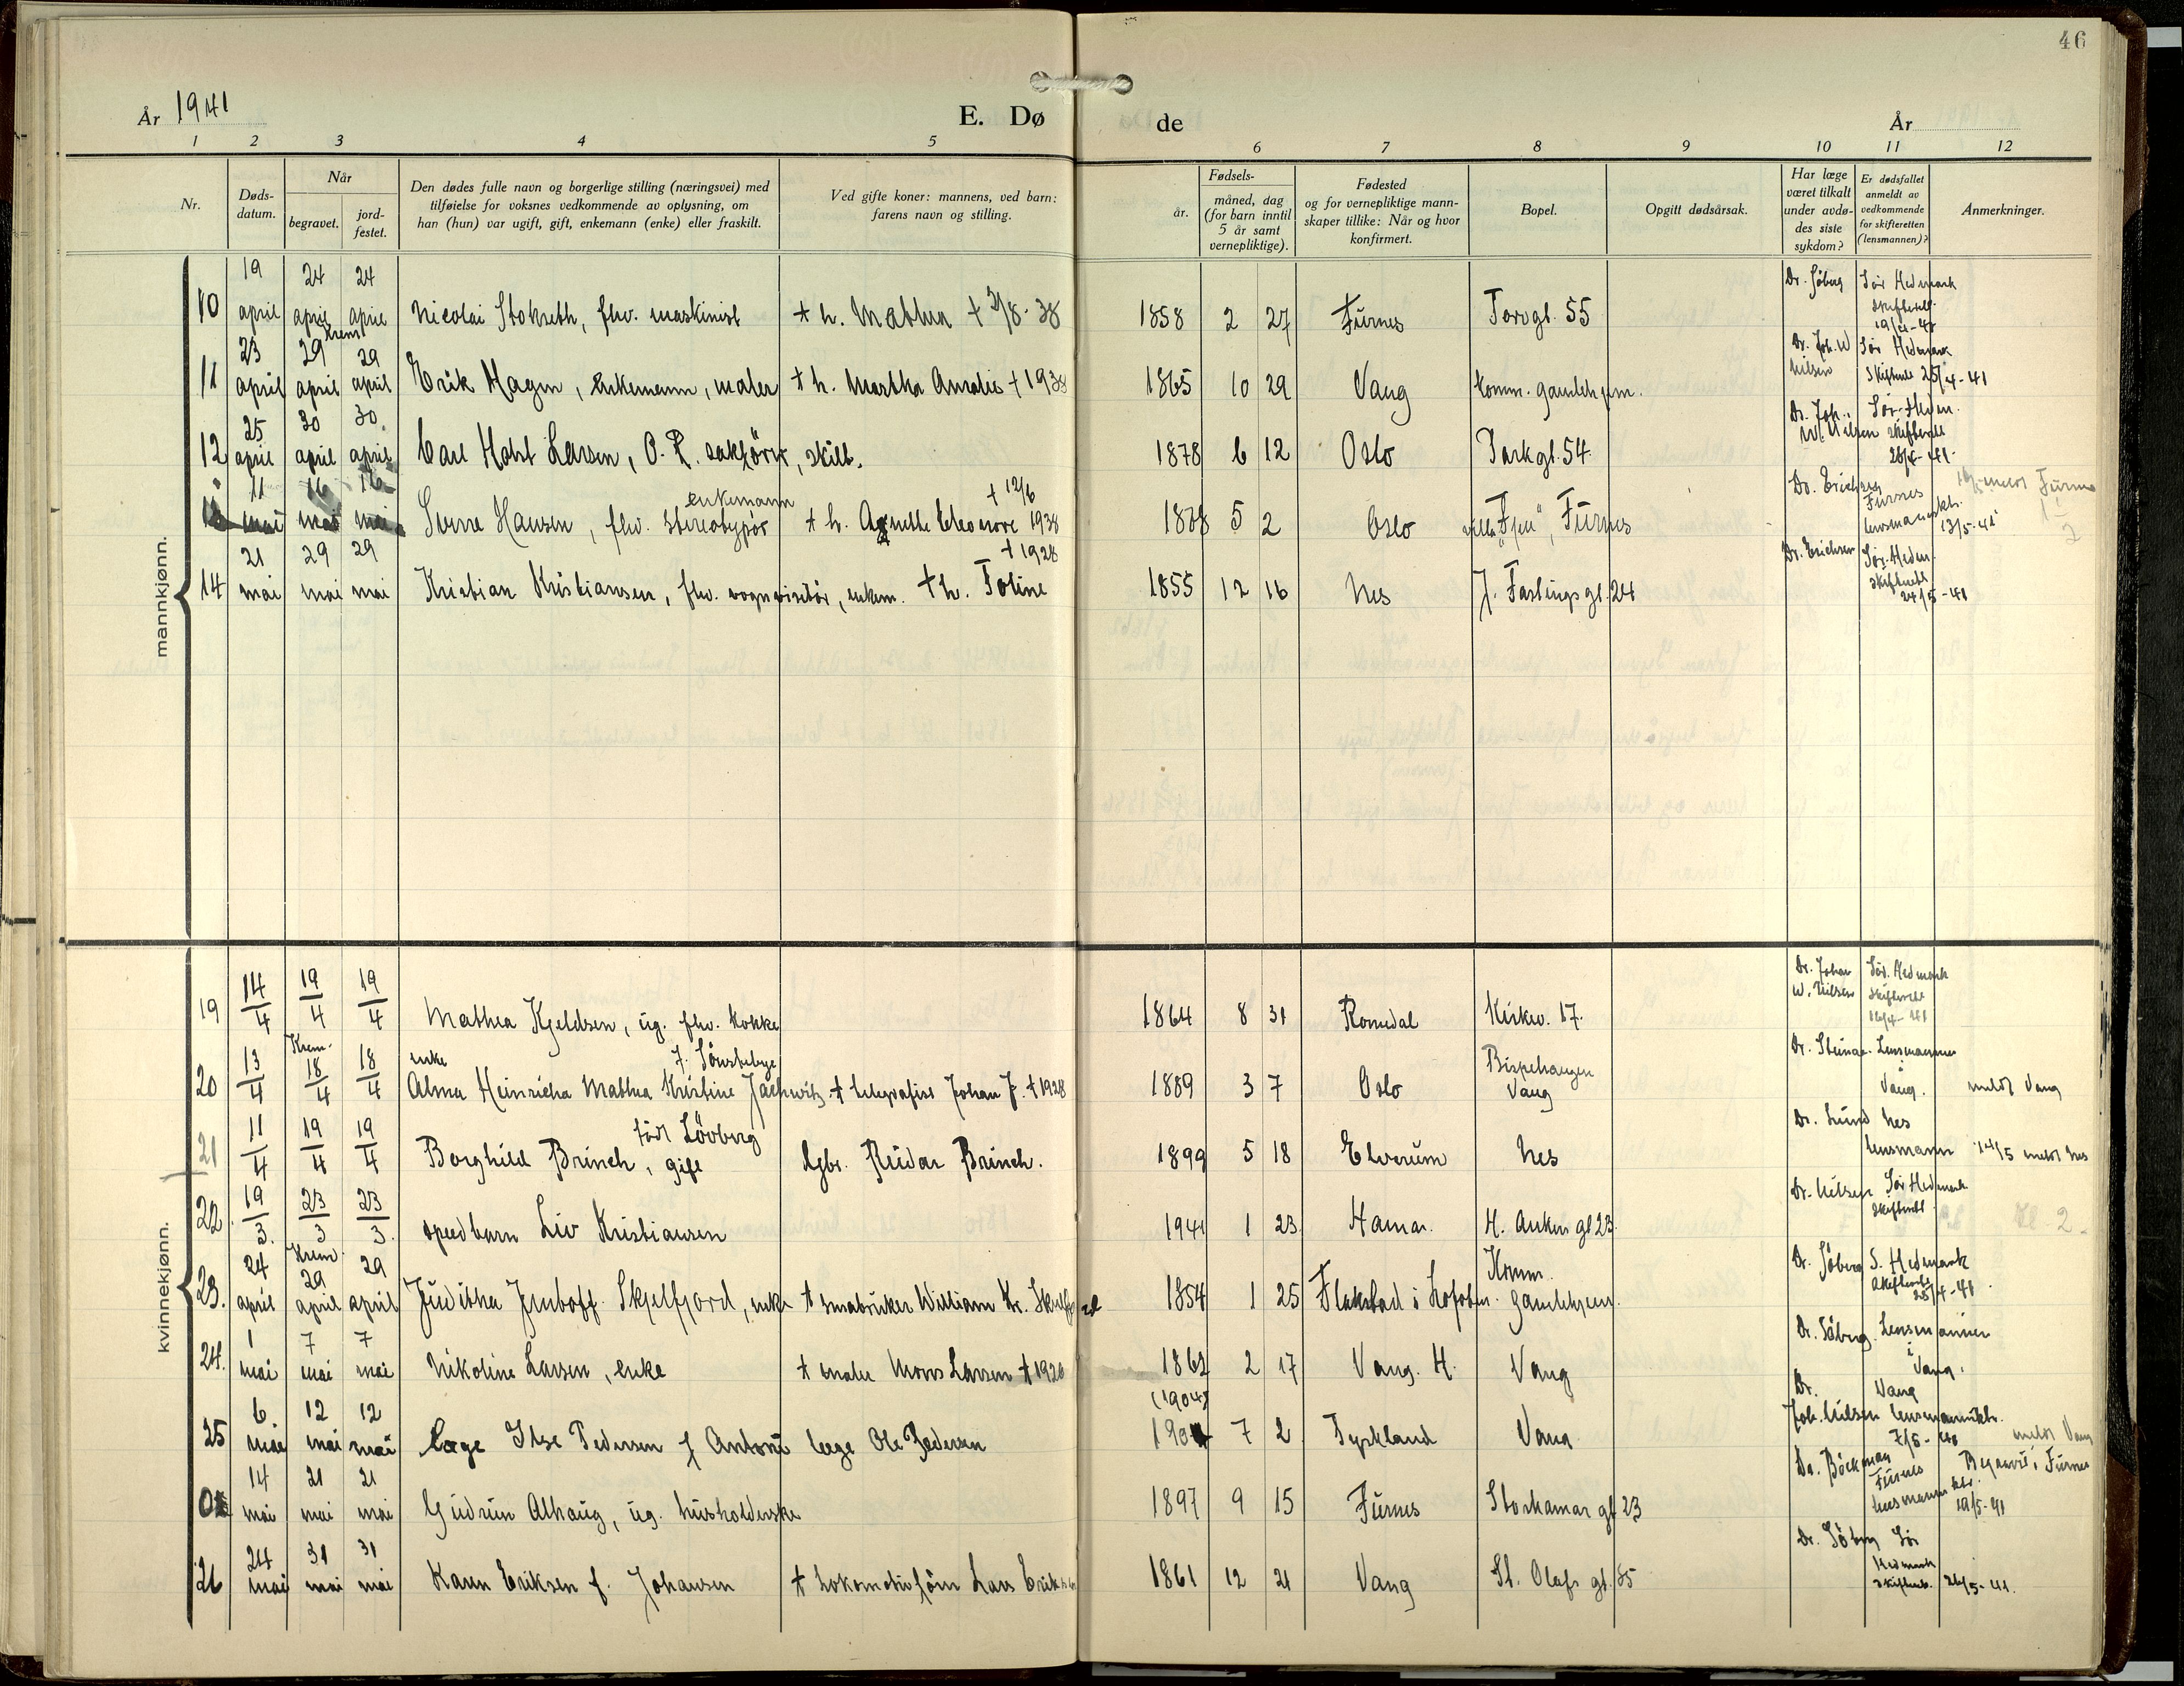 46
År 1941 E. Dø de År
1 2 3 4 5 6 7 8 9 10 11 12
Nr.
Døds-
datum.
Når
begravet.
jord-
festet.
Den dødes fulle navn og borgerlige stilling (næringsvei) med
tilføielse for voksnes vedkommende av oplysning, om
han (hun) var ugift, gift, enkemann (enke) eller fraskilt.
Ved gifte koner: mannens, ved barn:
farens navn og stilling.
Fødsels-
år.
måned, dag
(for barn inntil
5 år samt
vernepliktige).
Fødested
og for vernepliktige mann-
skaper tillike: Når og hvor
konfirmert.
Bopel.
Opgitt dødsårsak.
Har læge
været tilkalt
under avdø-
des siste
sykdom?
Er dødsfallet
anmeldt av
vedkommende
for skifteretten
(lensmannen)?
Anmerkninger.
mankjønn.
19 24 24 Dr. Søberg Sør Hedmark
10 april april april Nicolai Stokseth, fhv. maskinist † h. Mathea † 3/8-38 1858 2 27 Furnes Torvgt. 55 skifterett
19/4-41
krem
23 29 29 Dr. Joh. W Sør Hedmark
11 april april april Erik Hagen, enkemann, maler † h. Martha Amalie † 1938 1865 10 29 Vang Komm. gamlehjem. Nilsen Skifterett 25/4-41
25 30 30 Dr. Joh. Sør-Hedm.
12 april april april Carl Holst Larsen, O. R. sakfører, skilt. 1878 6 12 Oslo Parkgt. 54 W. Nilsen skifterett
26/4-41
11 16 16 enkemann † 12/6 Dr. Erichsen Furnes meldt Furnes
mai mai mai Hansen, fhv. stereotypør † h. Agnethe Eleonore 1938 5 2 Oslo Furnes lensmannsktr. 13/5-41
21 29 29 † 1928 Dr. Erichsen Sør-Hedm.
14 mai mai mai Kristian Kristiansen, fhv. vognvisitør, enkem. † h. Toline 1855 12 16 Nes J. Fastings gt. 24 skifterett
24/5-41
kvinnekjønn.
19 14/4 19/4 19/4 Mathea Kjeldsen, ug. fhv. kokke 1864 8 31 Romedal Kirkev. 17. Dr. Johan W. Nilsen Sør. Hedmark skifterett 16/4-41
Krem. enke f. Sønsteby Bispehaugen
20 13/4 18/4 18/4 Alma Heinricha Mathea Kristine † telegrafist Johan J. † 1928 1889 3 7 Oslo Vang Dr. Steinar Lensmannen i Vang. meldt Vang
født Løvberg
21 11/4 19/4 19/4 Borghild Brinch, gift Gbr. Reidar Brinch. 1899 5 18 Elverum Nes Dr. Lund Nes lensmann 14/5 meldt Nes
22 19/3. 23/3 23/3. spedbarn Liv Kristiansen 1941 1 23 Hamar. H. Ankers gt 23. Dr. Nilsen Sør Hedmark skifterett
24 Krem. 29 29 Komm.
23. april april april Juditha Skjelfjord, enke † småbruker William Kr. 1854 1 25 Flakstad i Lofoten. gamlehjem. Dr. Søberg S. Hedmark skifterett 25/4-41
1 7 7
24. mai mai mai Nikoline Larsen, enke † maler Mons Larsen † 1920 2 17 Vang. H. Vang Dr. Søberg. Lensmannen i Vang.
6. 12 12 (1904)
25 mai mai mai læge Ilse Pedersen f Antoni læge Ole Pedersen 1904 7 2 Tyskland Vang Dr. Joh. Nilsen Vang lensmannsktr. 7/5-41 meldt Vang
14 21 21
mai mai mai Gudrun Alhaug, ug. husholderske 1897 9 15 Furnes Storhamar gt 23 Dr. Böckman Furnes lensmannsktr. 19/5-41 Begravet i Furnes
24 31 31
26 mai mai mai Karen Eriksen f. Johansen † Lokomotivfører Lars Eriksen 1861 12 21 Vang St. Olafs gt. 85 Dr. Søberg Sør Hedmark skifterett. 26/5-41.